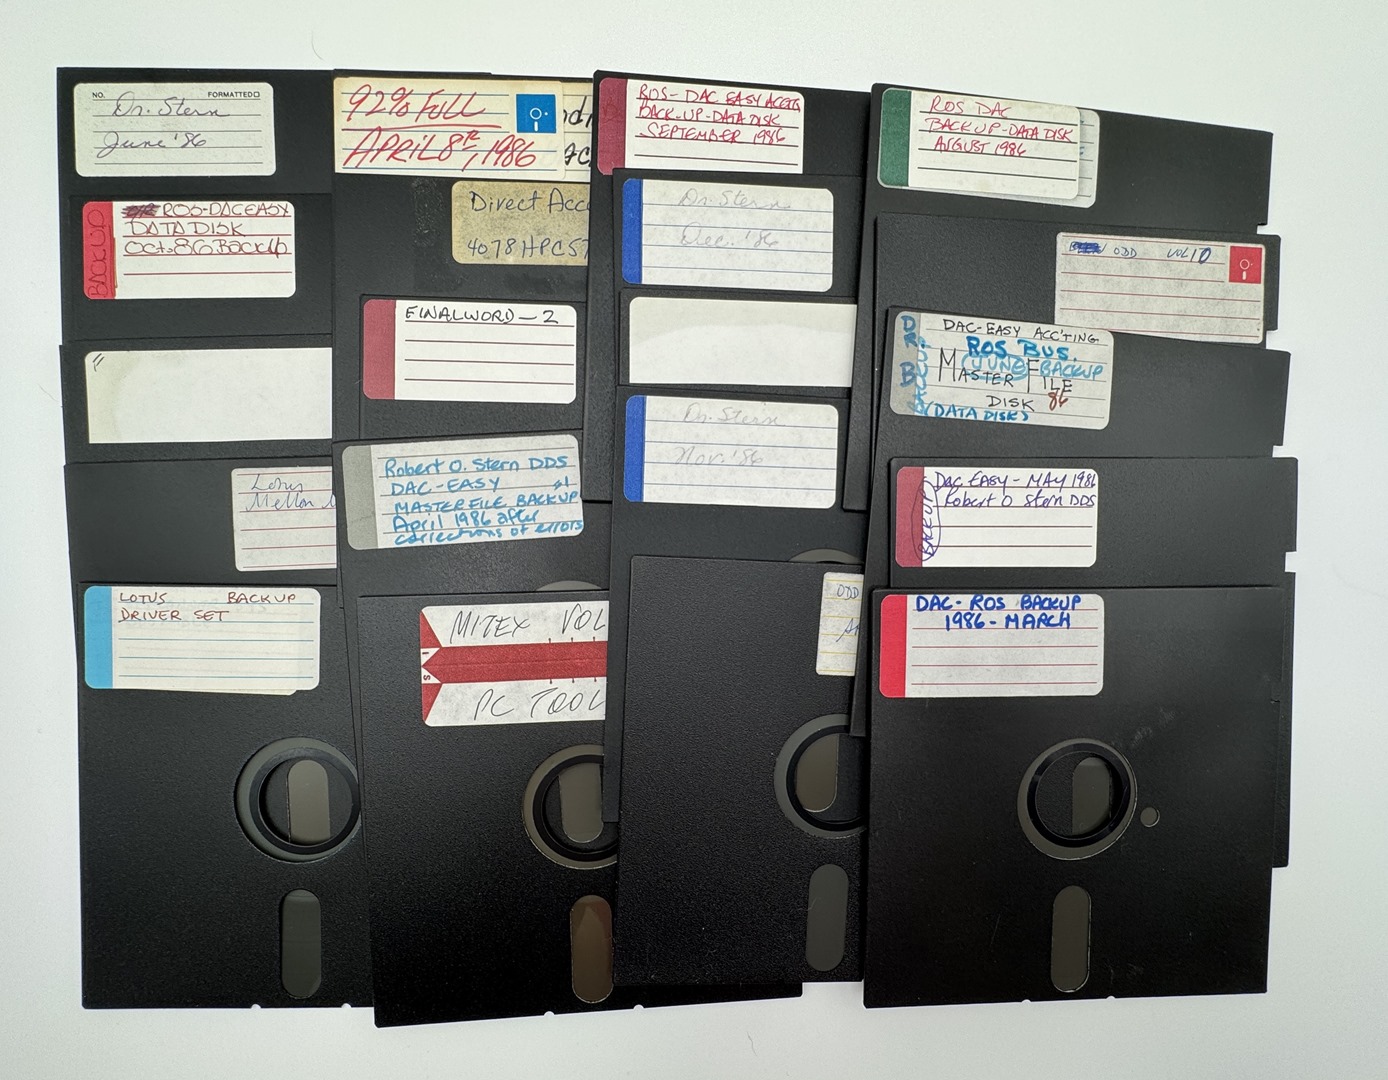 NO. FORMATTED
Dr. Stern
June '86
BACKUP
ROS-DACEASY
DATA DISK
Oct-86 BACKUP
Lotus
Mellon
LOTUS BACKUP
DRIVER SET
92% FULL
APRIL 8TH, 1986
Direct Acc
4078HPC57
FINALWORD-2
Robert O. Stern DDS
DAC-EASY #1
MASTERFILE BACKUP
April 1986 after
corrections of errors
MITEX VOL
PC TOOL
ROS-DAC EASY ACCTG
BACK-UP-DATA DISK
SEPTEMBER 1986
Dr. Stern
Dec. '86
Dr. Stern
Nov. '86
ODD
ROS DAC
BACKUP-DATA DISK
AUGUST 1986
ODD VOL 10
DR. B
BACKUP
DAC-EASY ACC'TING
ROS BUS.
(JUNE) BACKUP
MASTER FILE
DISK 86
(DATA DISK)
BACKUP
Dac EASY - MAY 1986
Robert O Stern DDS
DAC-ROS BACKUP
1986-MARCH